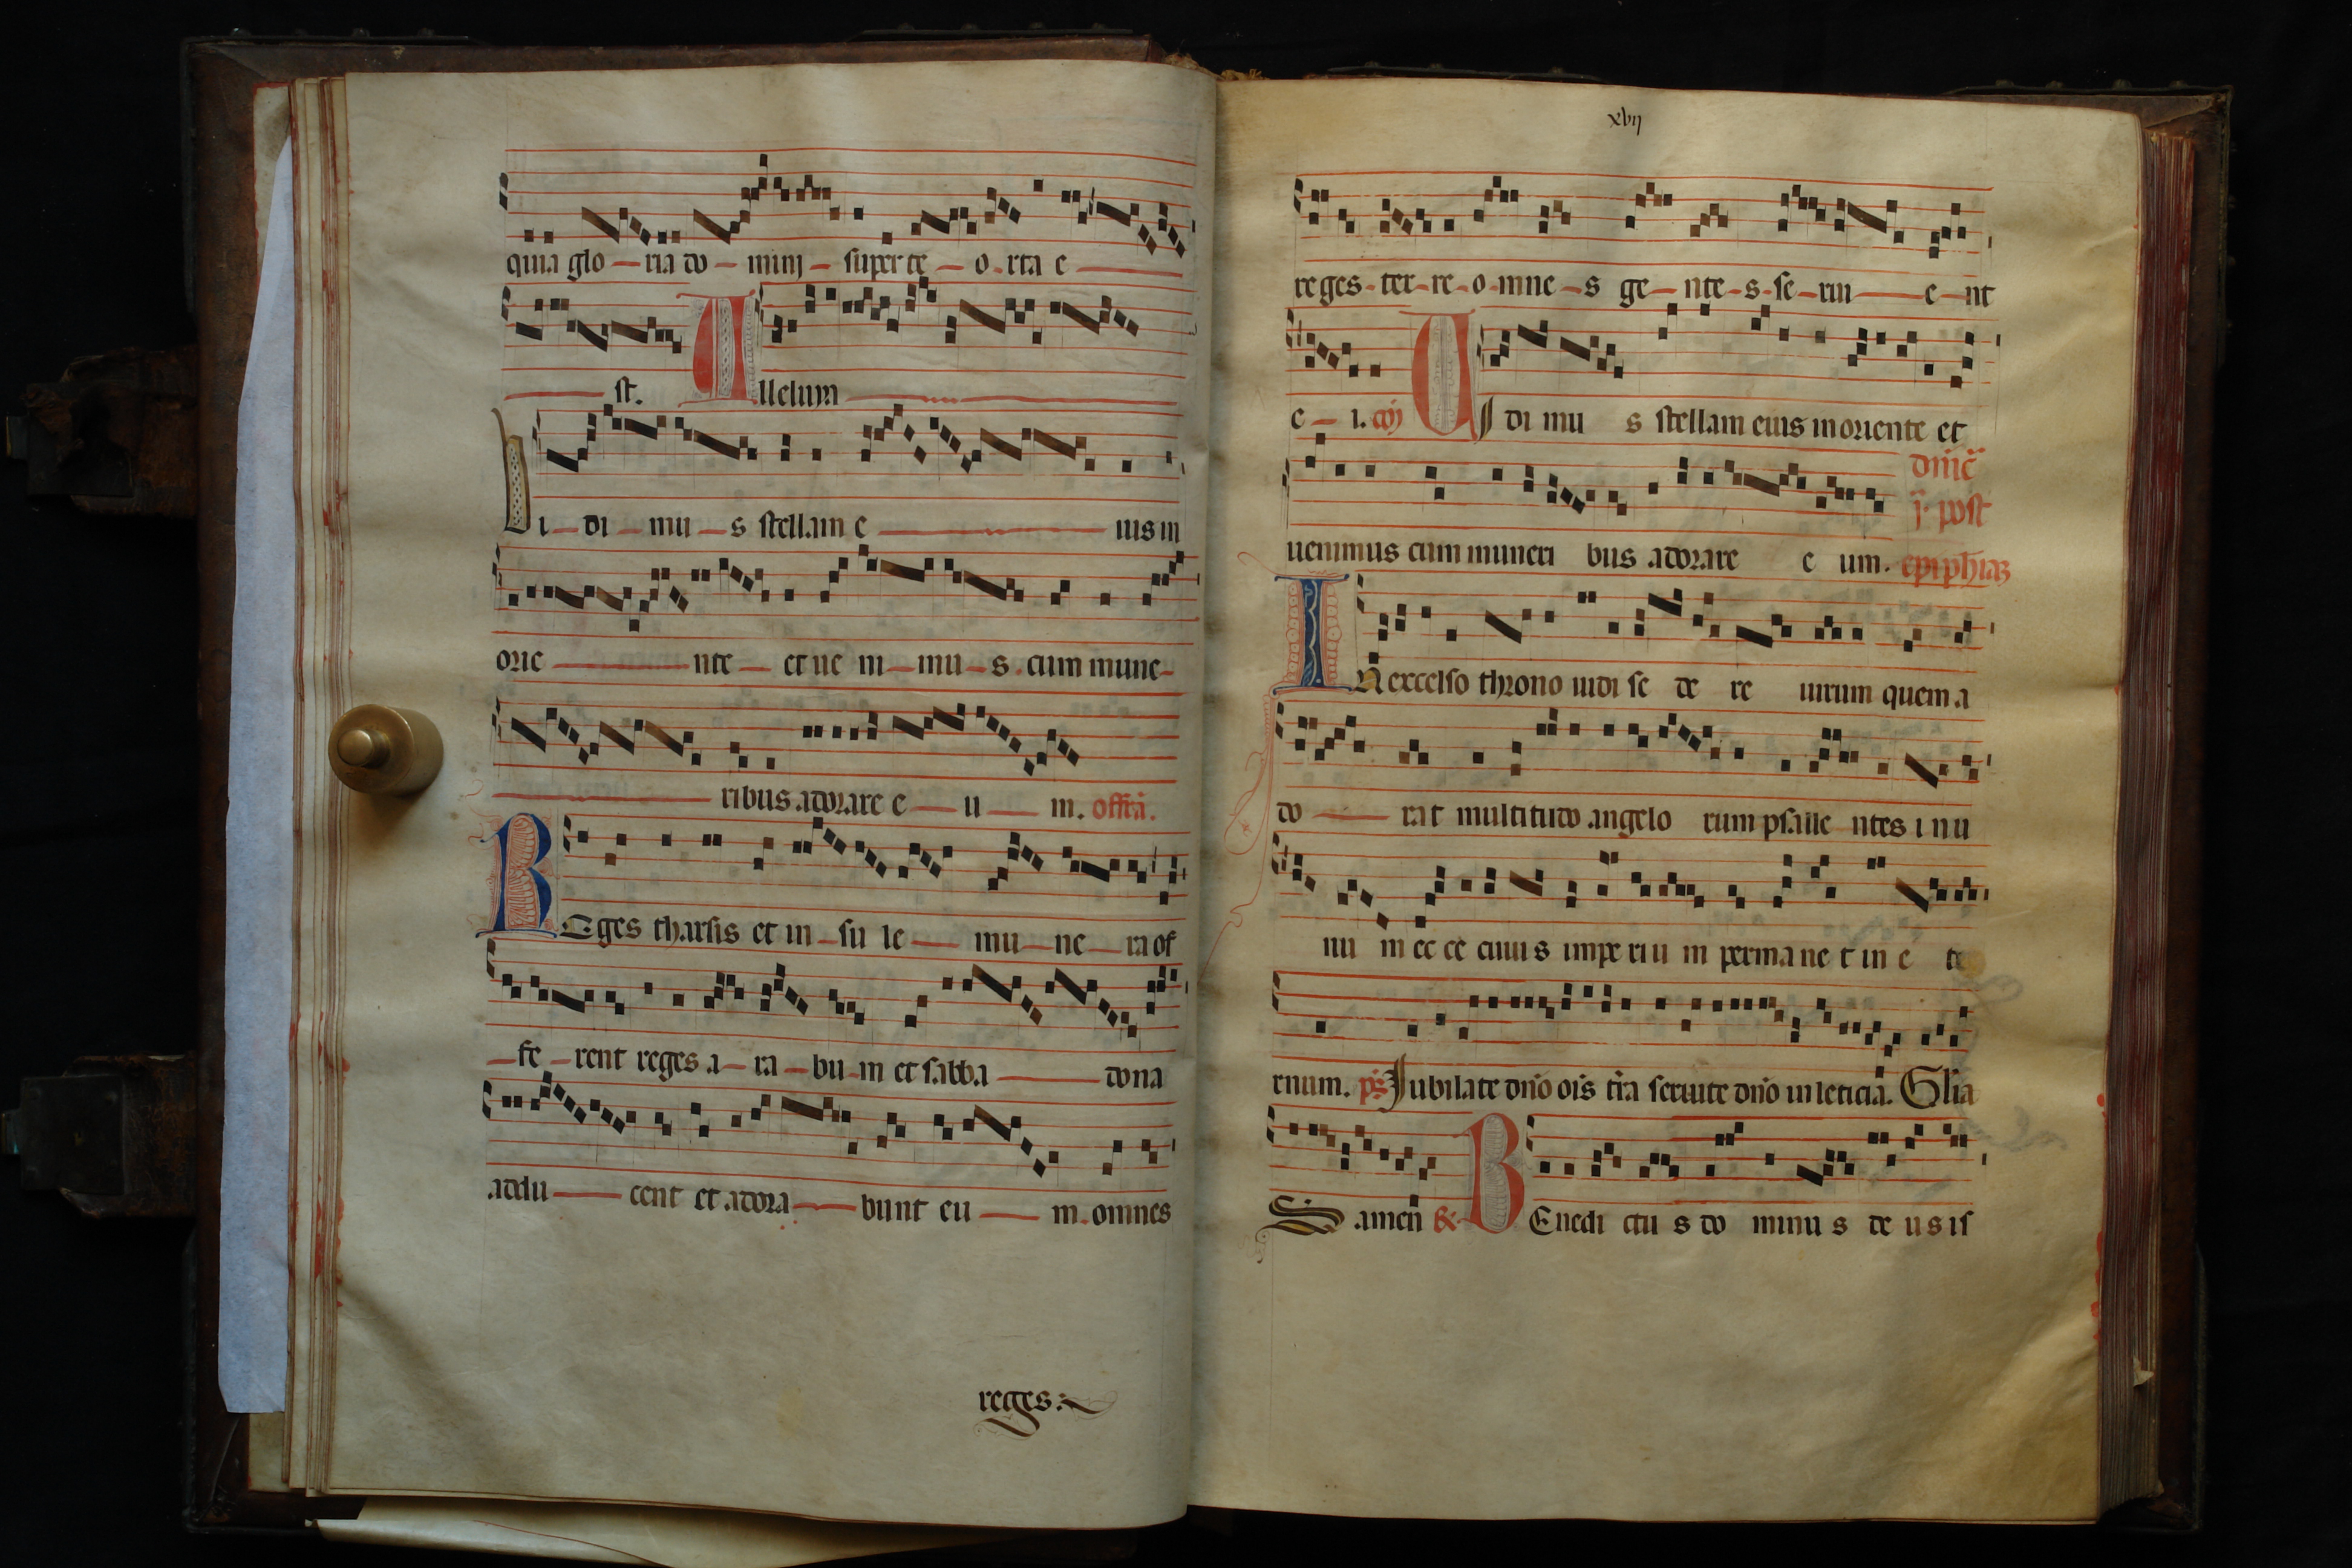 quia glo – ria do – mini – super te – o – rta e –
– st. Alleluya –
Vi – di – mu – s stellam e – ius in
orie – nte – et ue ni – mu – s cum mune –
– ribus adorare e – u – m. offitã.
REges tharsis et in – su le – mu – ne – ra of
– fe – rent reges a – ra – bu – m et sabba – dona
addu – cent et adora – bunt eu – m. omnes
reges:
xvij
reges – ter – re – o – mne – s ge – nte – s – se – rui – e – nt
e – i. cõ Ui di mu s stellam eius in oriente et
uenimus cum muneri bus adorare e um.
dñic̃
j. post
epiphiaʒ
IN excelso throno uidi se de re uirum quem a
do – rat multitudo angelo rum psalle ntes i n u
nu m ec ce cuiu s impe riu m permane t in e te
rnum. ps̃ Jubilate dño oĩs tr̃a seruite dño in leticia. Gl̃ia
S. amen BEnedi ctu s do minu s de u s is